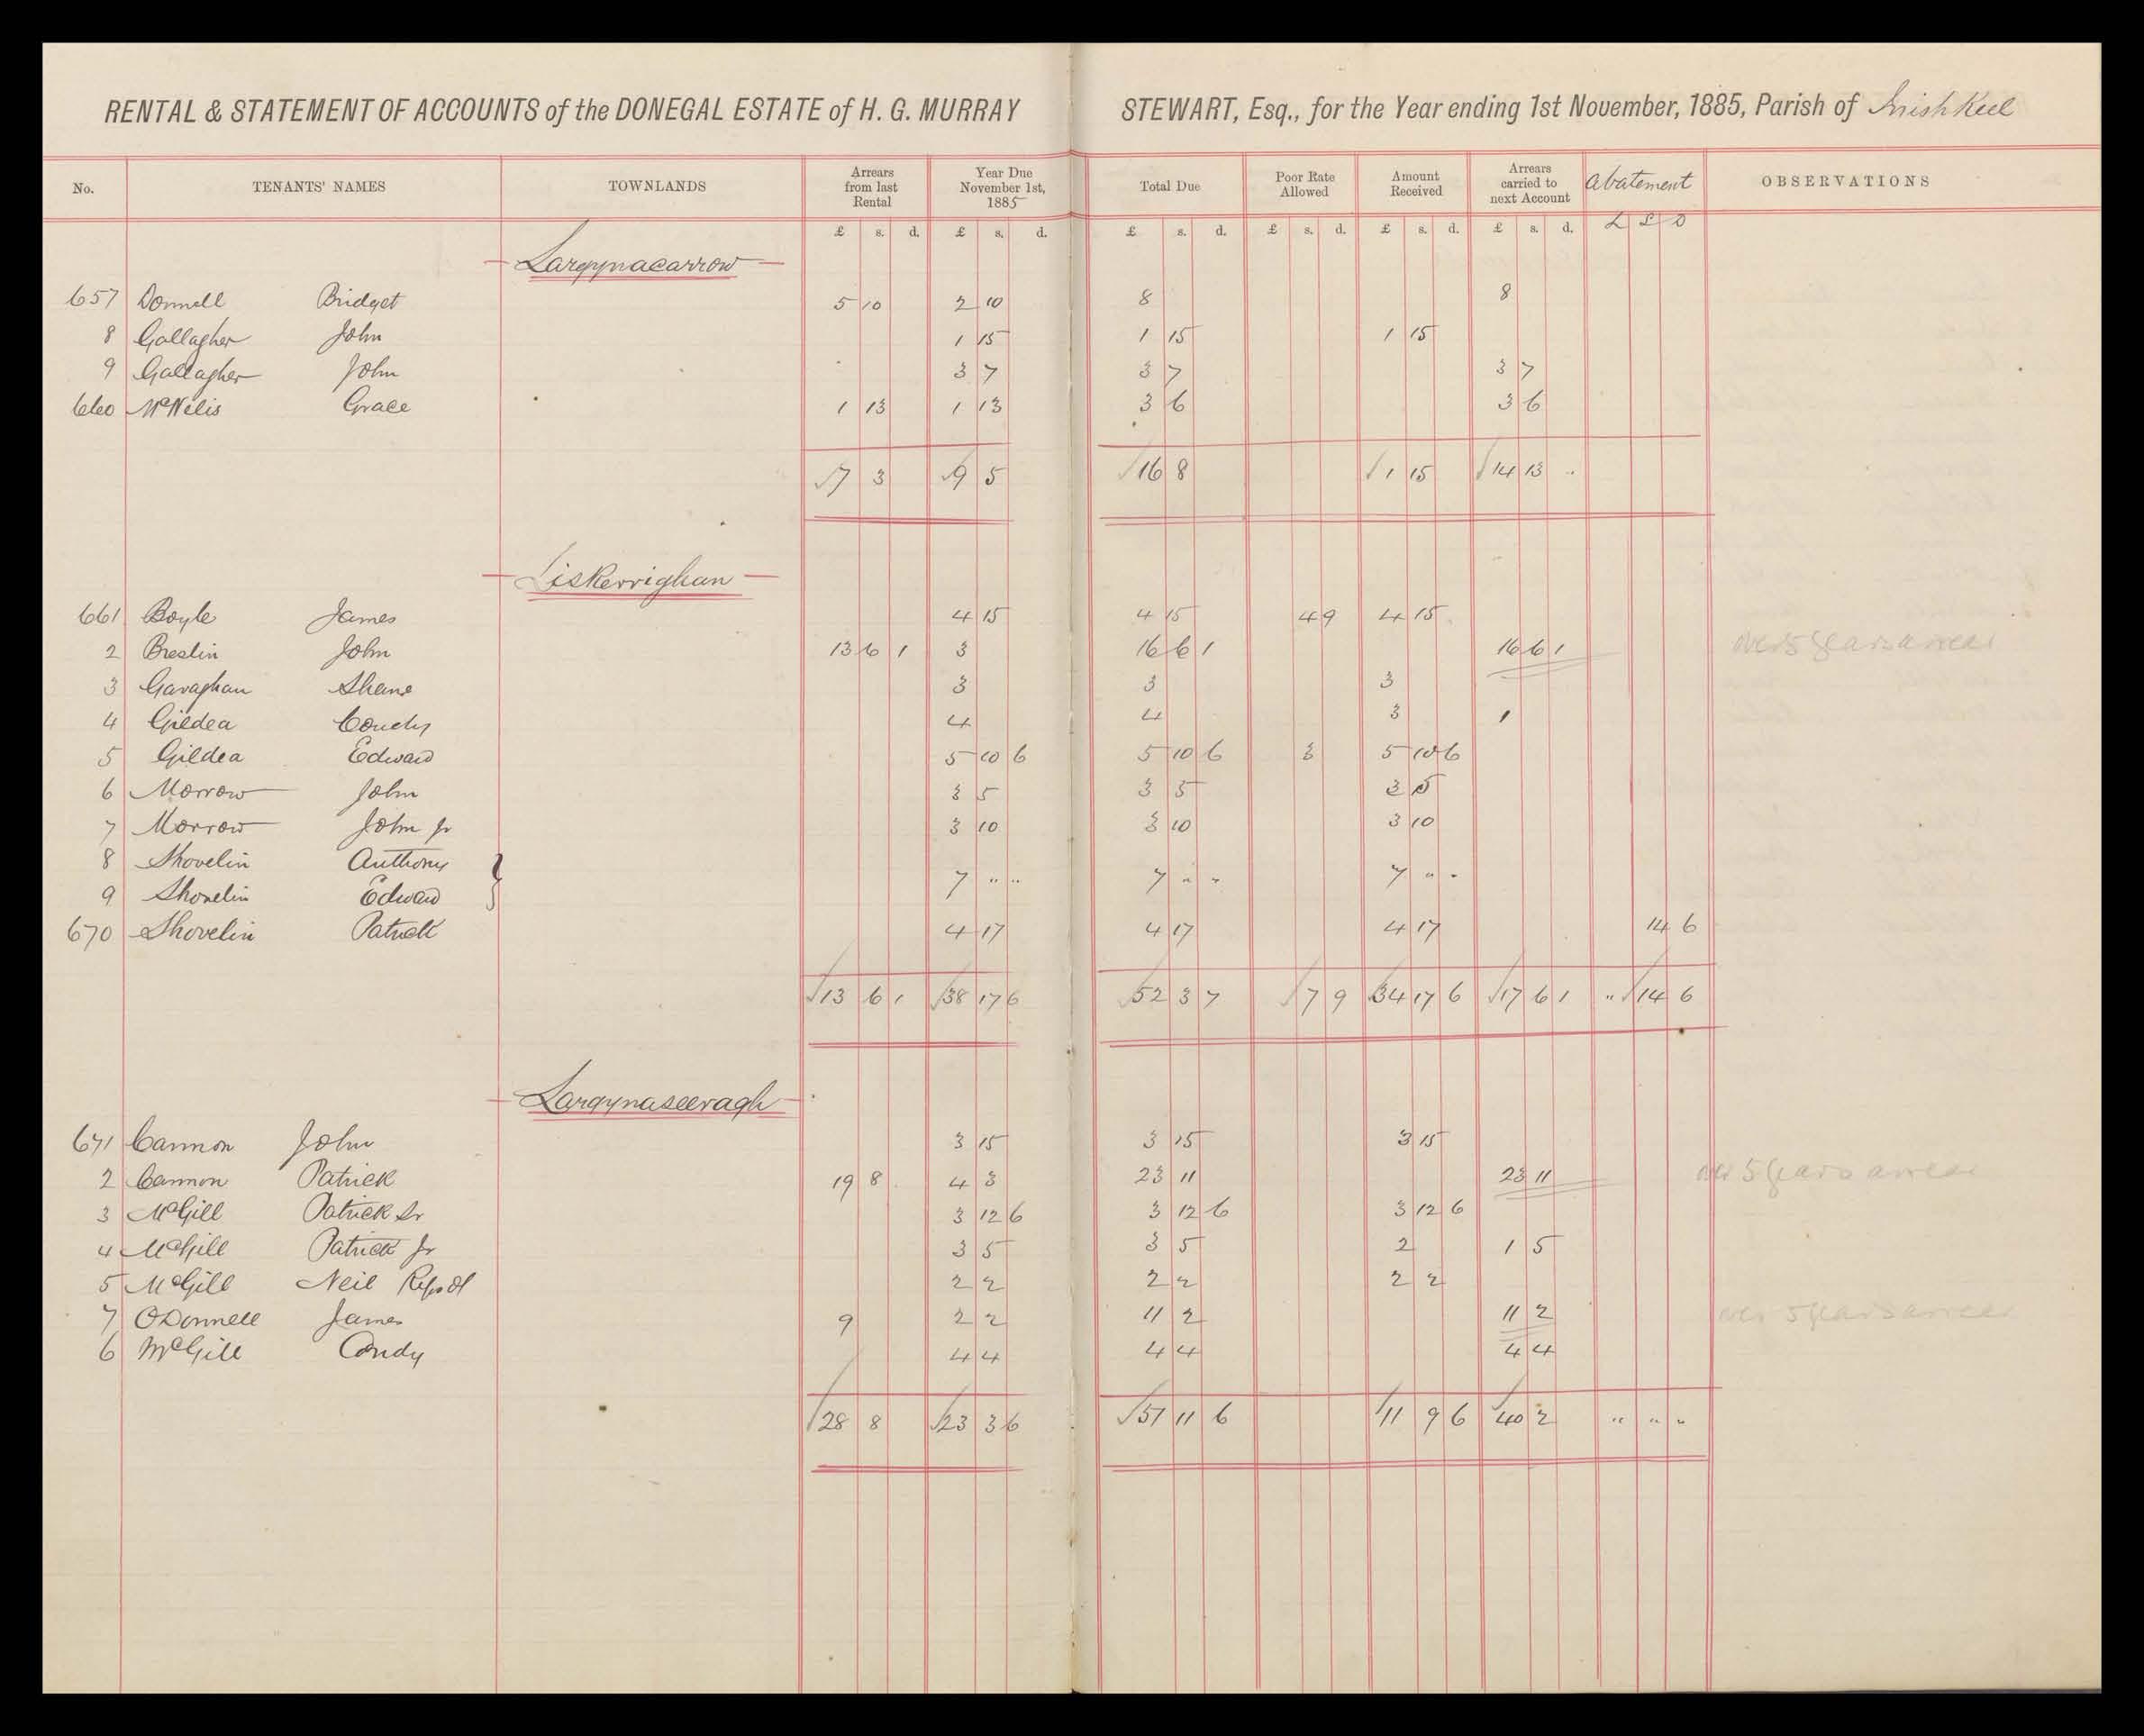 RENTAL & STATEMENT OF ACCOUNTS of the DONEGAL ESTATE of H. G. MURRAY STEWART, Esq., for the Year ending 1st November, 1885, Parish of Inishkeel
No. TENANTS' NAMES TOWNLANDS Arrears from last Rental Year Due November 1st, 1885 Total Due Poor Rate Allowed Amount Received Arrears carried to next Account Abatement OBSERVATIONS
£ s. d. £ s. d. £ s. d. £ s. d. £ s. d. £ s. d. £ S D
Largynacarrow
657 Donnell Bridget 5 10 2 10 8 8
8 Gallagher John 1 15 1 15 1 15
9 Gallagher John 3 7 3 7 3 7
660 McNelis Grace 1 13 1 13 3 6 3 6
7 3 9 5 16 8 1 15 14 13 ..
Liskerrighan
661 Boyle James 4 15 4 15 4 9 4 15
2 Breslin John 13 6 1 3 16 6 1 16 6 1 over 5 years arrear
3 Gavaghan Shane 3 3 3
4 Gildea Condy 4 4 3 1
5 Gildea Edward 5 10 6 5 10 6 3 5 10 6
6 Morrow John 3 5 3 5 3 5
7 Morrow John Jr 3 10 3 10 3 10
8 Shovelin Anthony }
9 Shovelin Edward } 7 " " 7 " " 7 " "
670 Shovelin Patrick 4 17 4 17 4 17 14 6
13 6 1 38 17 6 52 3 7 7 9 34 17 6 17 6 1 " 14 6
Largynaseeragh
671 Cannon John 3 15 3 15 3 15
2 Cannon Patrick 19 8 4 3 23 11 23 11 over 5 years arrear
3 McGill Patrick Sr 3 12 6 3 12 6 3 12 6
4 McGill Patrick Jr 3 5 3 5 2 1 5
5 McGill Neil 2 2 2 2 2 2
7 O'Donnell James 9 2 2 11 2 11 2 over 5 years arrear
6 McGill Condy 4 4 4 4 4 4
28 8 23 3 6 51 11 6 11 9 6 40 2 " " "